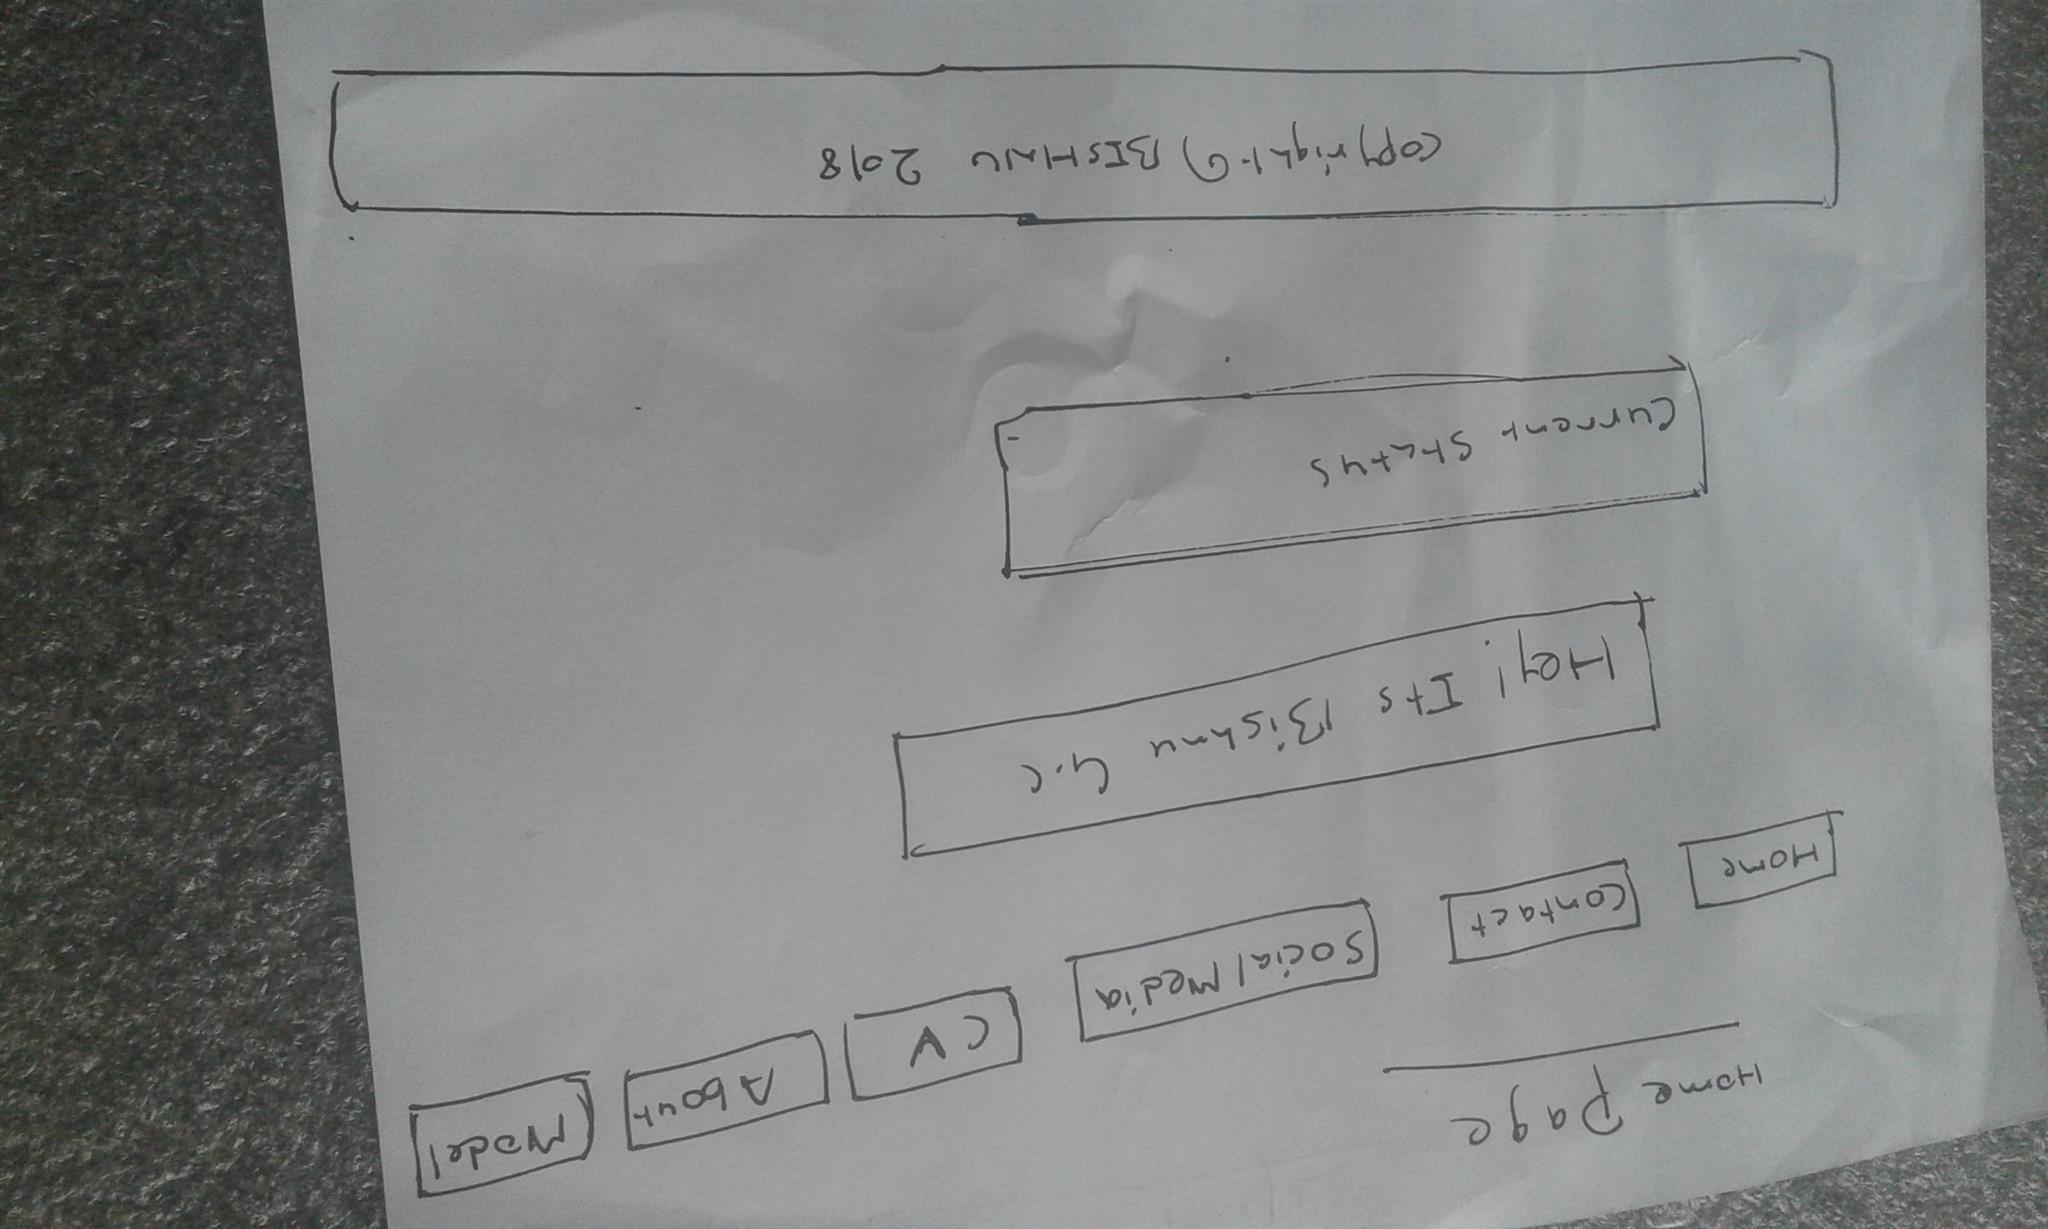 Home Page
Home Contact Social Media CV About Model
Hey! Its Bishnu G.C
Current Status
Copyright © BISHNU 2018